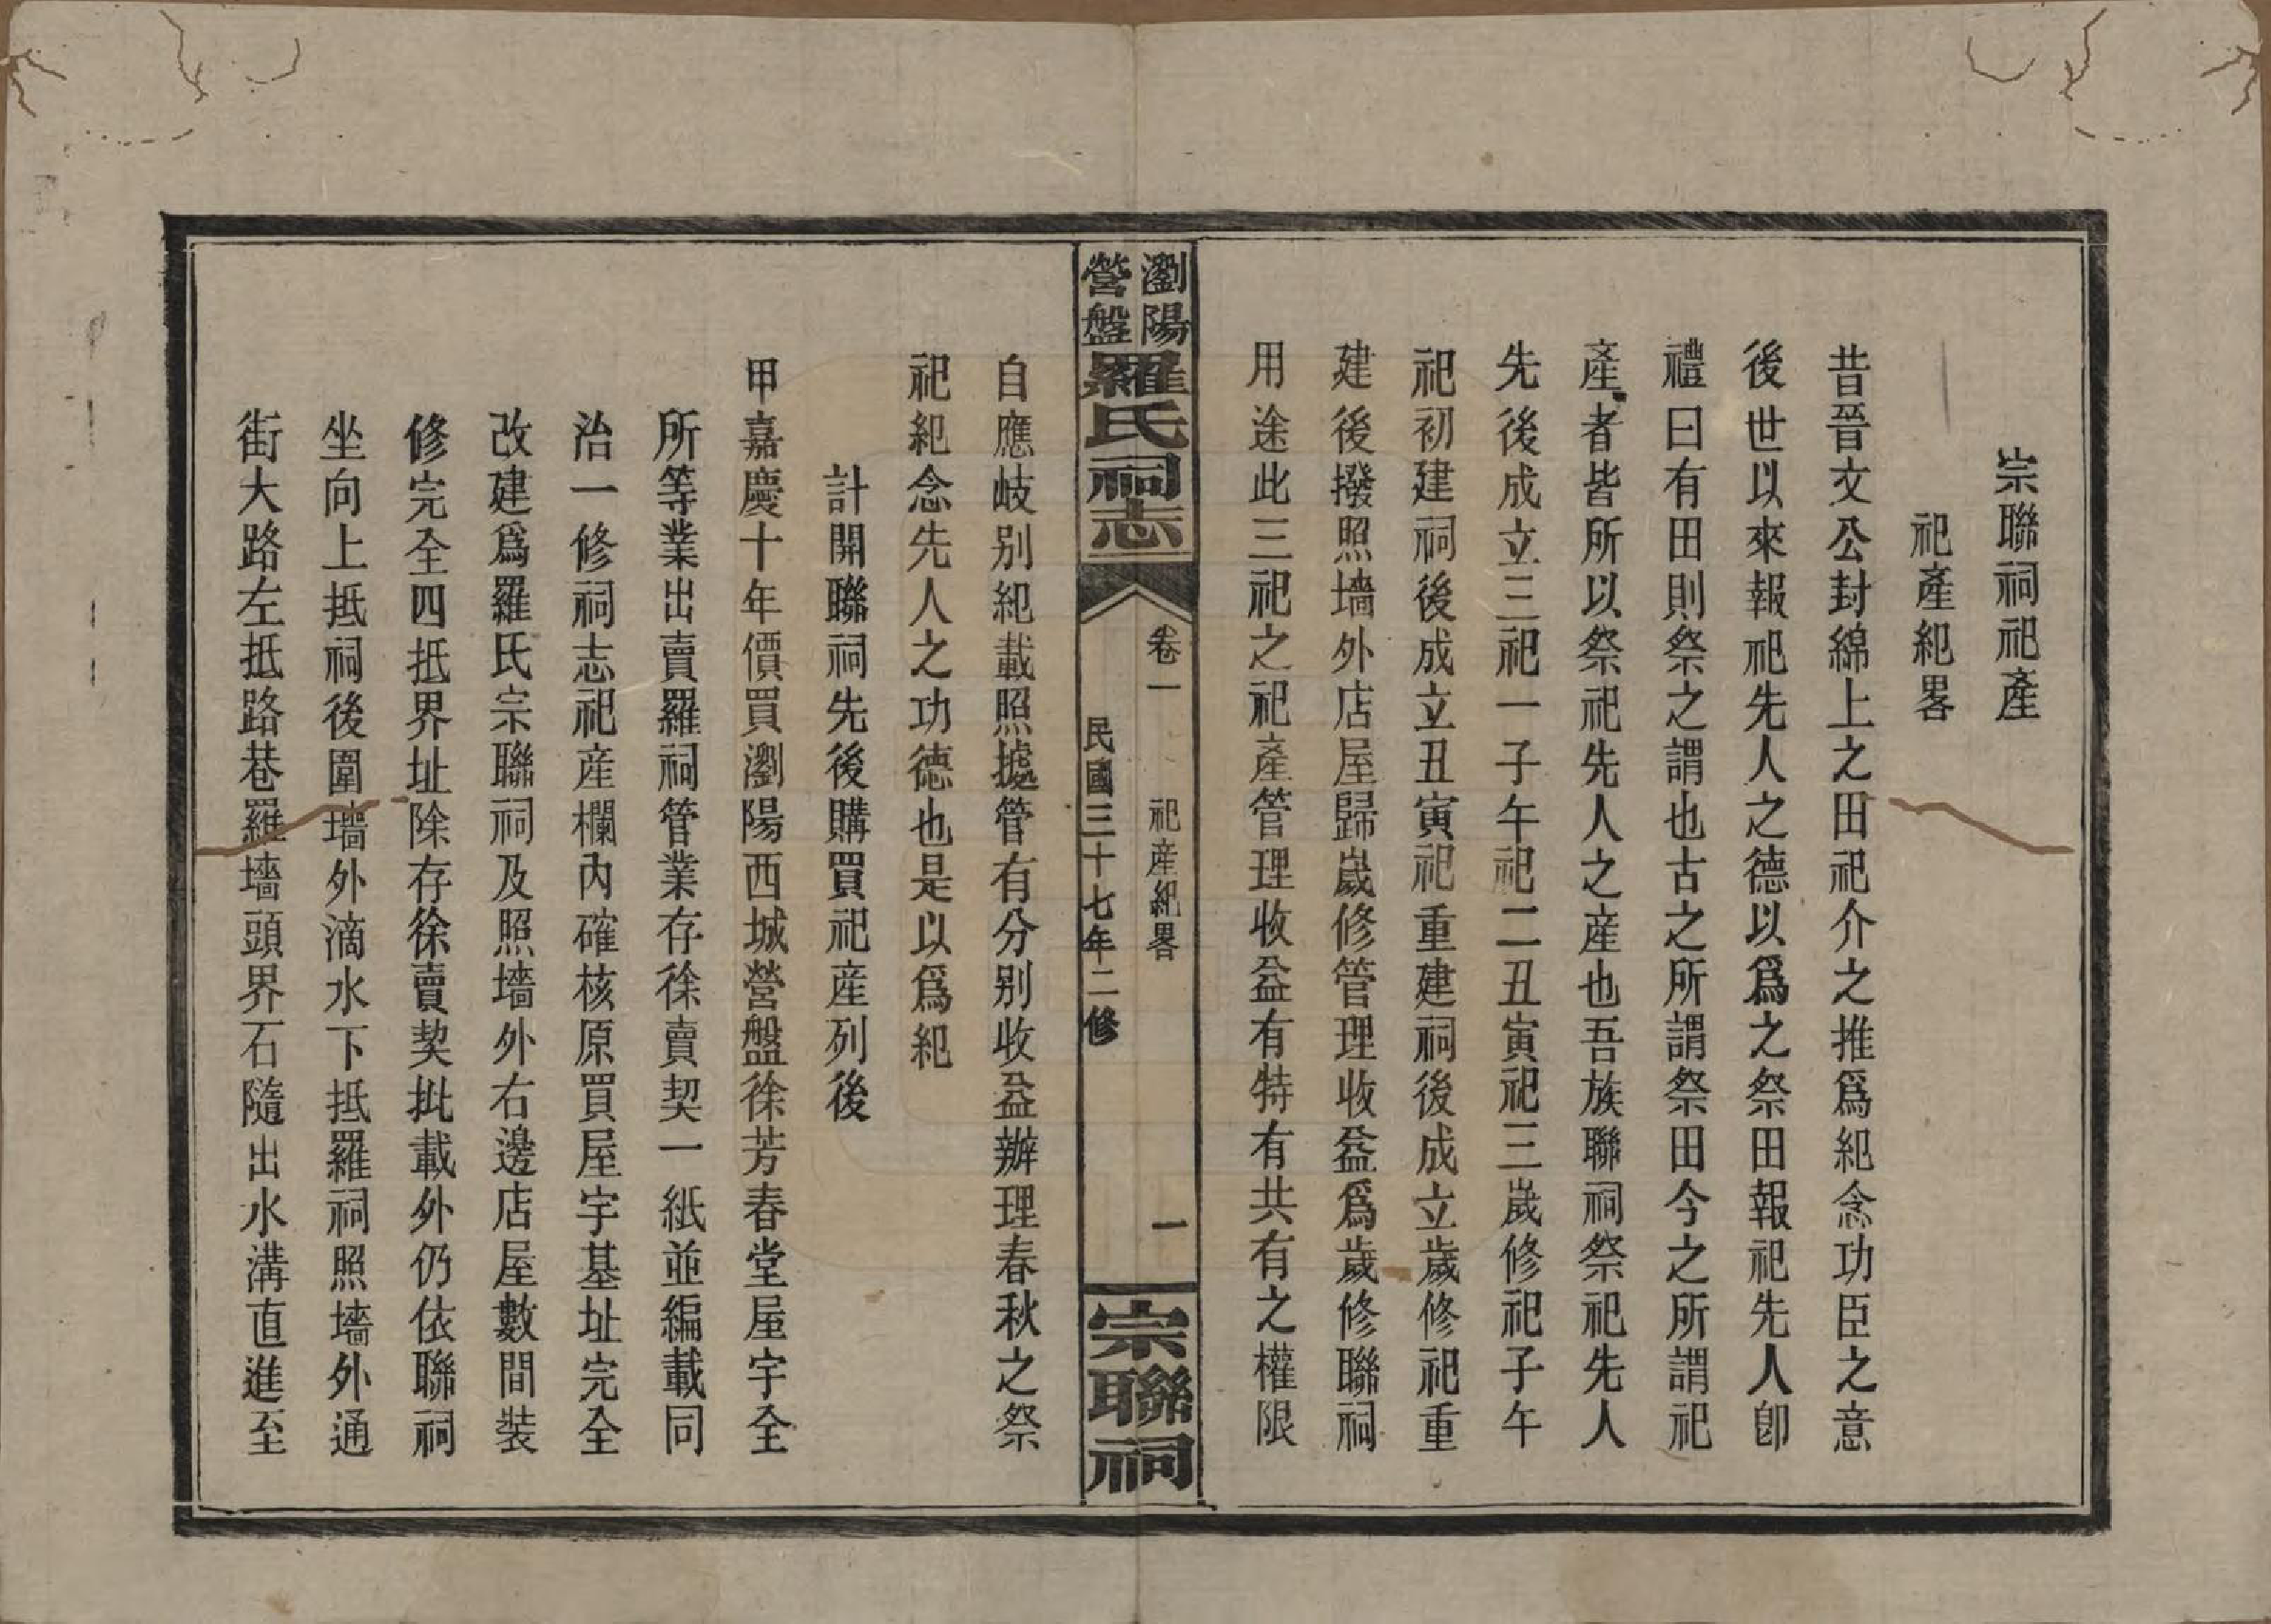 宗聯祠祀產
祀產紀畧
昔晉文公封綿上之田祀介之推爲紀念功臣之意
後世以來報祀先人之德以爲之祭田報祀先人卽
禮曰有田則祭之謂也古之所謂祭田今之所謂祀
產者皆所以祭祀先人之産也吾族聯祠祭祀先人
先後成立三祀一子午祀二丑寅祀三歲修祀子午
祀初建祠後成立丑寅祀重建祠後成立歲修祀重
建後撥照墻外店屋歸歲修管理收益爲歲修聯祠
用途此三祀之祀產管理收益有特有共有之權限
瀏陽
營盤
羅氏祠志
卷一
祀産紀畧
一
民國三十七年二修
宗聯祠
自應歧别紀載照據管有分别收益辦理春秋之祭
祀紀念先人之功德也是以爲紀
計開聯祠先後購買祀産列後
甲嘉慶十年價買瀏陽西城營盤徐芳春堂屋宇全
所等業出賣羅祠管業存徐賣契一紙並編載同
治一修祠志祀産欄內確核原買屋宇基址完全
改建爲羅氏宗聯祠及照墻外右邊店屋數間裝
修完全四抵界址除存徐賣契批載外仍依聯祠
坐向上抵祠後圍墻外滴水下抵羅祠照墻外通
街大路左抵路巷羅墻頭界石隨出水溝直進至